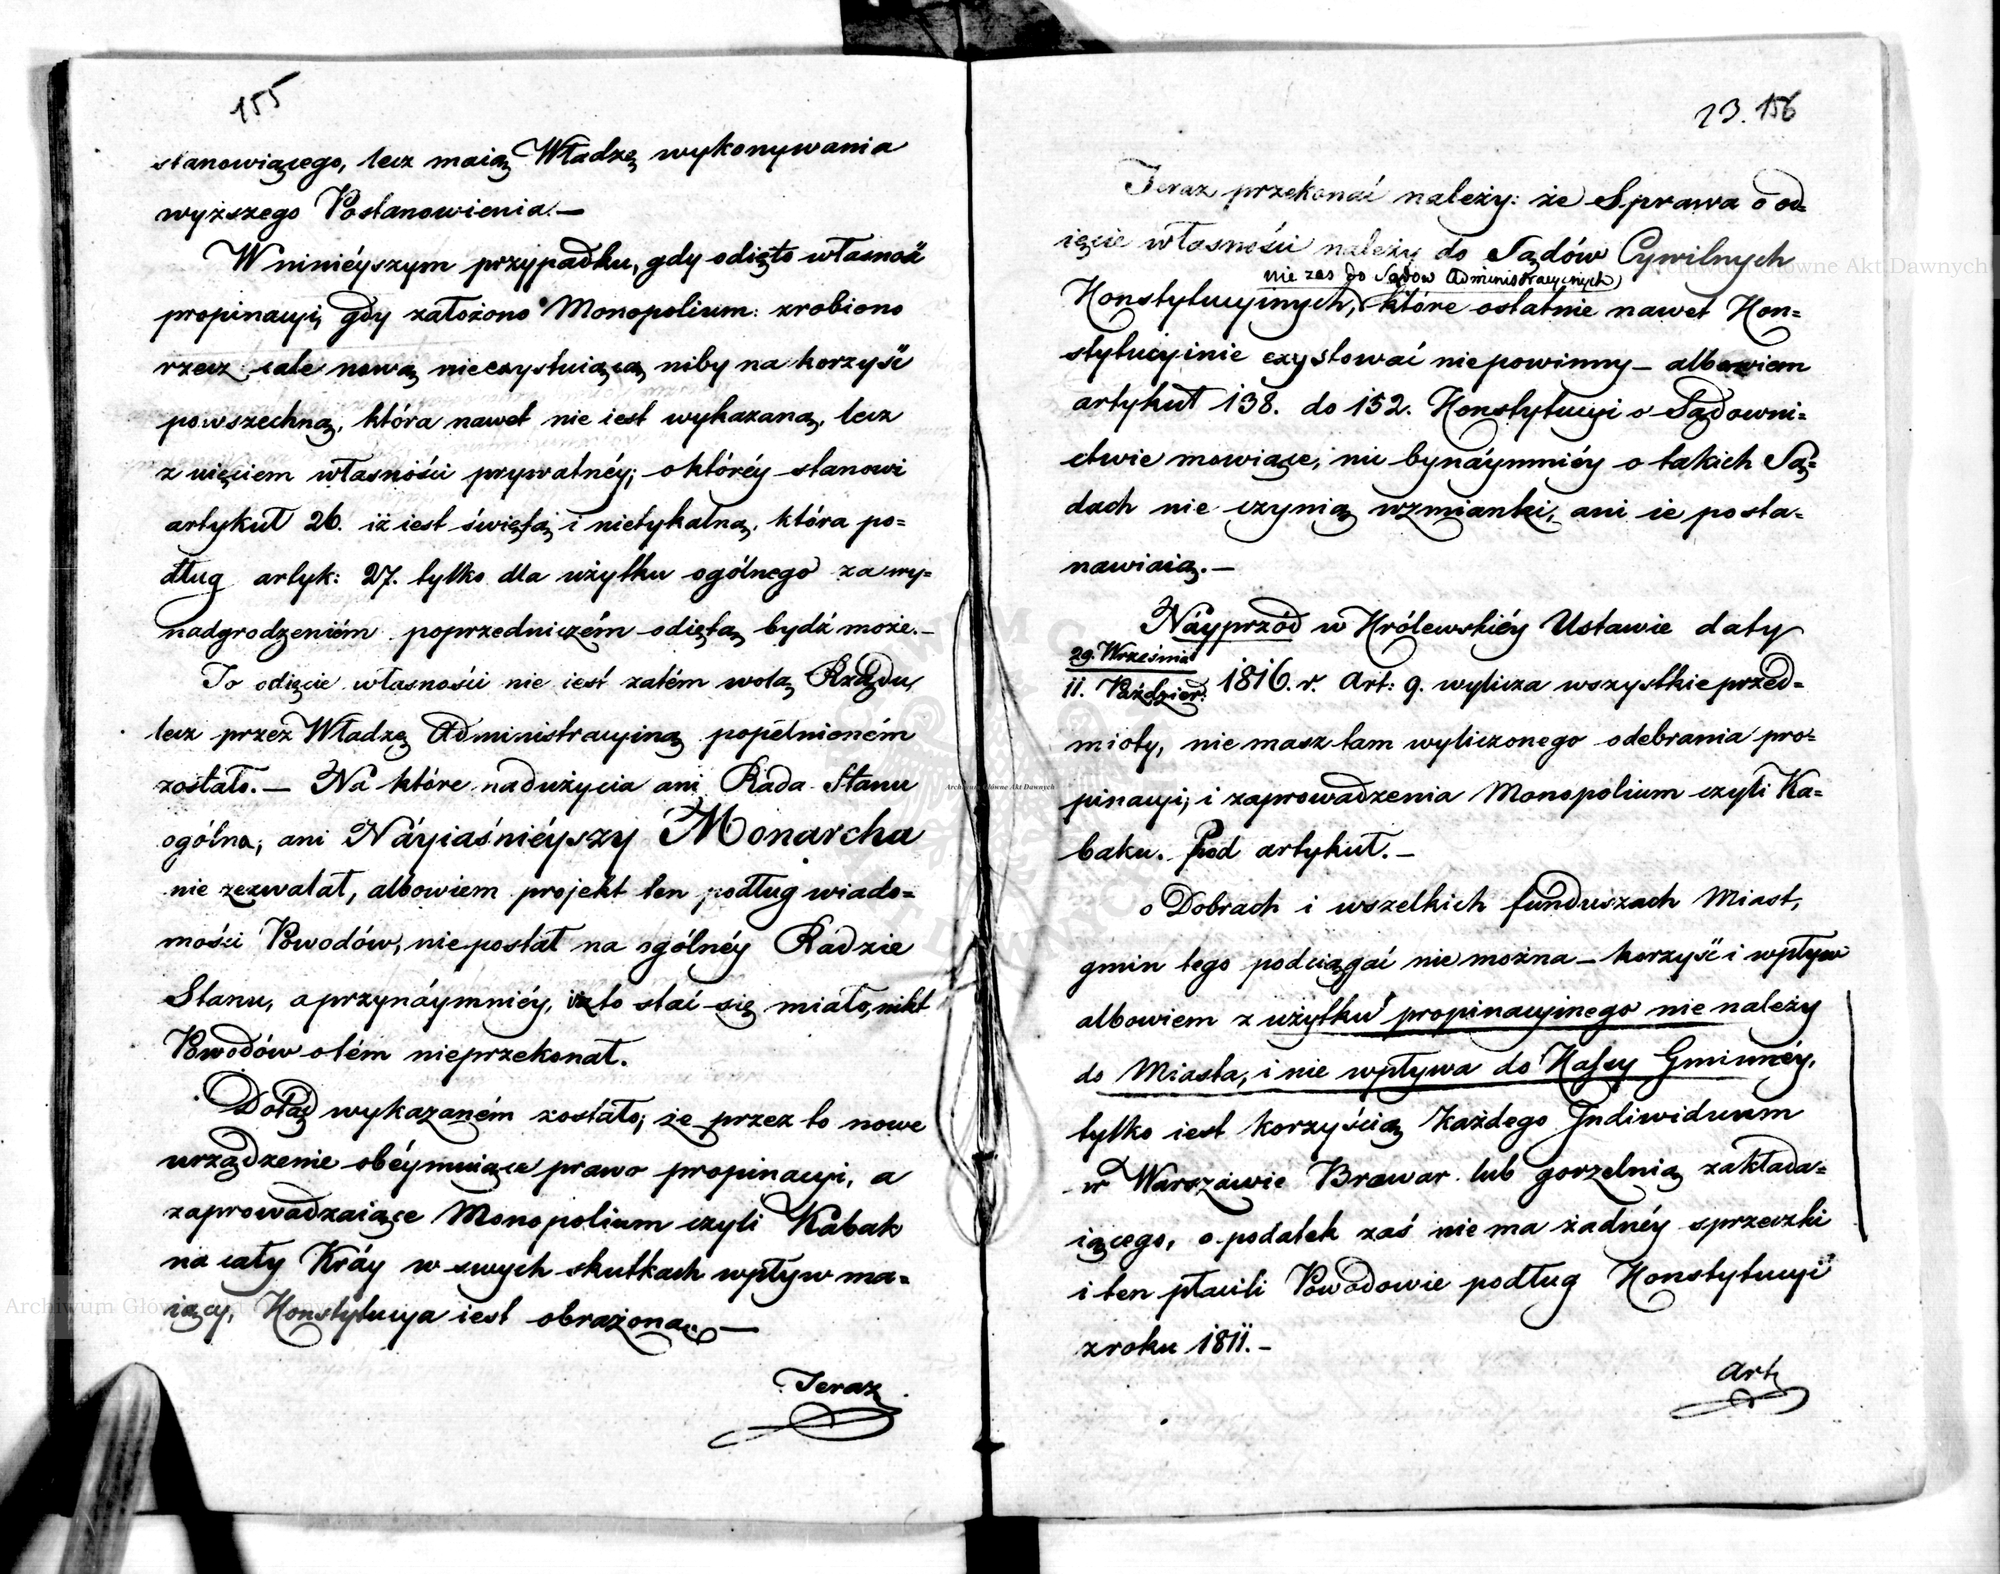 155
stanowiącego, lecz maią Władzę wykonywania
wyższego Postanowienia.—
W ninieyszym przypadku, gdy odięto własność
propinacyi, gdy założono Monopolium: zrobiono
rzecz całe nową nieexystuiącą niby na korzyść
powszechną, która nawet nie iest wykazaną, lecz
z uięciem własności prywatnéy; o któréy stanowi
artykuł 26. iż iest świętą i nietykalną, która po=
dług artyk: 27. tylko dla użytku ogólnego za wy=
nadgrodzeniém poprzedniczém odiętą bydź może.—
To odięcie własności nie iest zatém wolą Rządu,
lecz przez Władzę Administracyiną popełnioném
zostało.— Na które nadużycia ani Rada Stanu
ogólna, ani Náyiaśniéyszy Monarcha
nie zezwalał, albowiem projekt ten podług wiado=
mości Powodów, nie postał na ogólnéy Radzie
Stanu, a przynáymniéy, iż to stać się miało, nikt
Powodów o tém nieprzekonał.
Dotąd wykazaném zostało, że przez to nowe
urządzenie obéymuiące prawo propinacyi, a
zaprowadzaiące Monopolium czyli Kabak
na cały Kráy w swych skutkach wpływ ma=
iący, Konstytucya iest obrażona.—
Teraz
23. 156
Teraz przekonać należy: że Sprawa o od=
ięcie własności należy do Sądów Cywilnych
nie zas do Sądów Administracyinych
Konstytucyinych, które ostatnie nawet Kon=
stytucyinie exystować niepowinny — albowiem
artykuł 138. do 152. Konstytucyi o Sądowni=
ctwie mowiące, nic bynáymniéy o takich Są=
dach nie czynią wzmianki, ani ie posta=
nawiaią.—
Náyprzód w Królewskiéy Ustawie daty
29. Września
11. Paździer: 1816. r. Art: 9. wylicza wszystkie przed=
mioty, nie masz tam wyliczonego odebrania pro=
pinacyi, i zaprowadzenia Monopolium czyli Ka=
baku. Pod artykuł.—
o Dobrach i wszelkich funduszach Miast,
gmin tego podciągać nie można — korzyść i wpływ
albowiem z użytku propinacyinego nie należy
do Miasta, i nie wpływa do Kassy Gminnéy,
tylko iest korzyścią Każdego Indiwiduum
w Warszawie Browar lub gorzelnią zakłada=
iącego, o podatek zaś nie ma żadnéy sprzeczki
i ten płacili Powodowie podług Konstytucyi
z roku 1811.—
Art
Archiwum Główne Akt Dawnych
Archiwum Główne Akt Dawnych